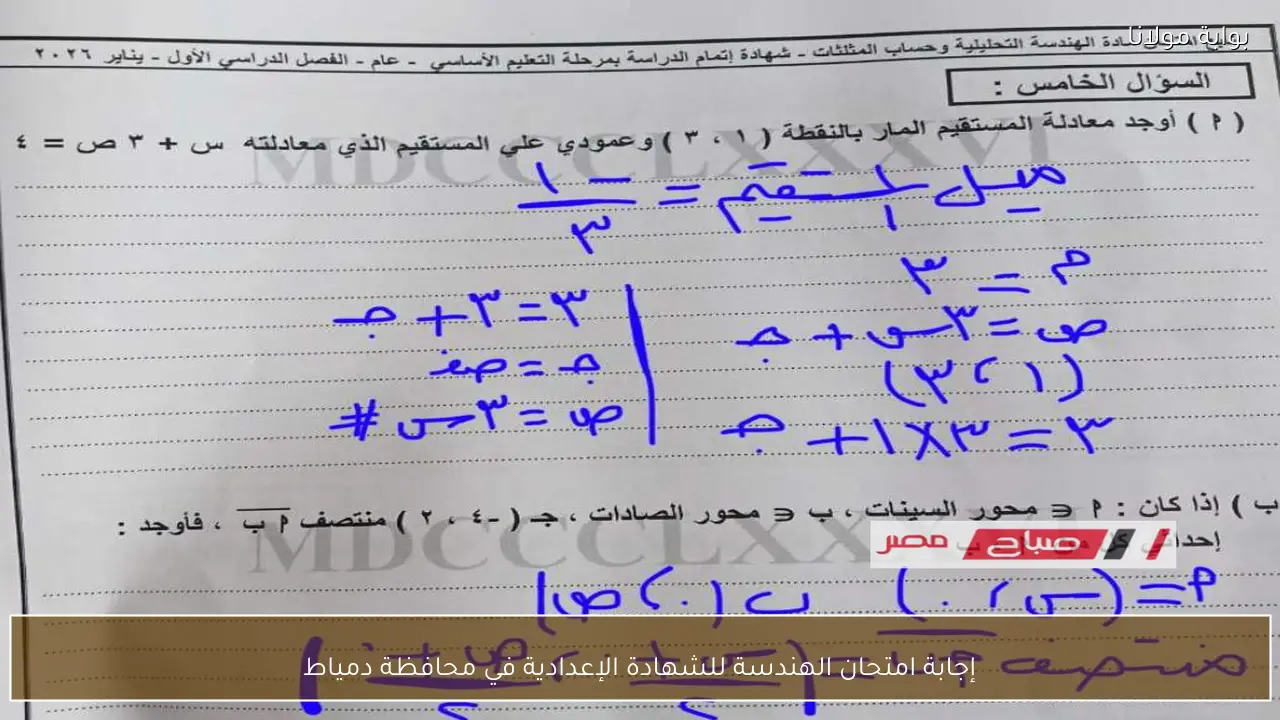 بوابة مولانا
مادة الهندسة التحليلية وحساب المثلثات - شهادة إتمام الدراسة بمرحلة التعليم الأساسي - عام - الفصل الدراسي الأول - يناير ٢٠٢٦
السؤال الخامس :
( ٩ ) أوجد معادلة المستقيم المار بالنقطة ( ١ ، ٣ ) وعمودي علي المستقيم الذي معادلته س + ٣ ص = ٤
MDCCCLXXXVI
ميل المستقيم = -١/٣
م = ٣
ص = ٣س + جـ
(١ ، ٣)
٣ = ٣ × ١ + جـ
٣ = ٣ + جـ
جـ = صفر
ص = ٣س #
ب ) إذا كان : ٩ ∈ محور السينات ، ب ∈ محور الصادات ، جـ ( -٤ ، ٢ ) منتصف ٩ ب ، فأوجد :
MDCCCLXXXVI
صباح مصر
٩ = (س ، ٠) ب (٠ ، ص)
منتصف
إجابة امتحان الهندسة للشهادة الإعدادية في محافظة دمياط